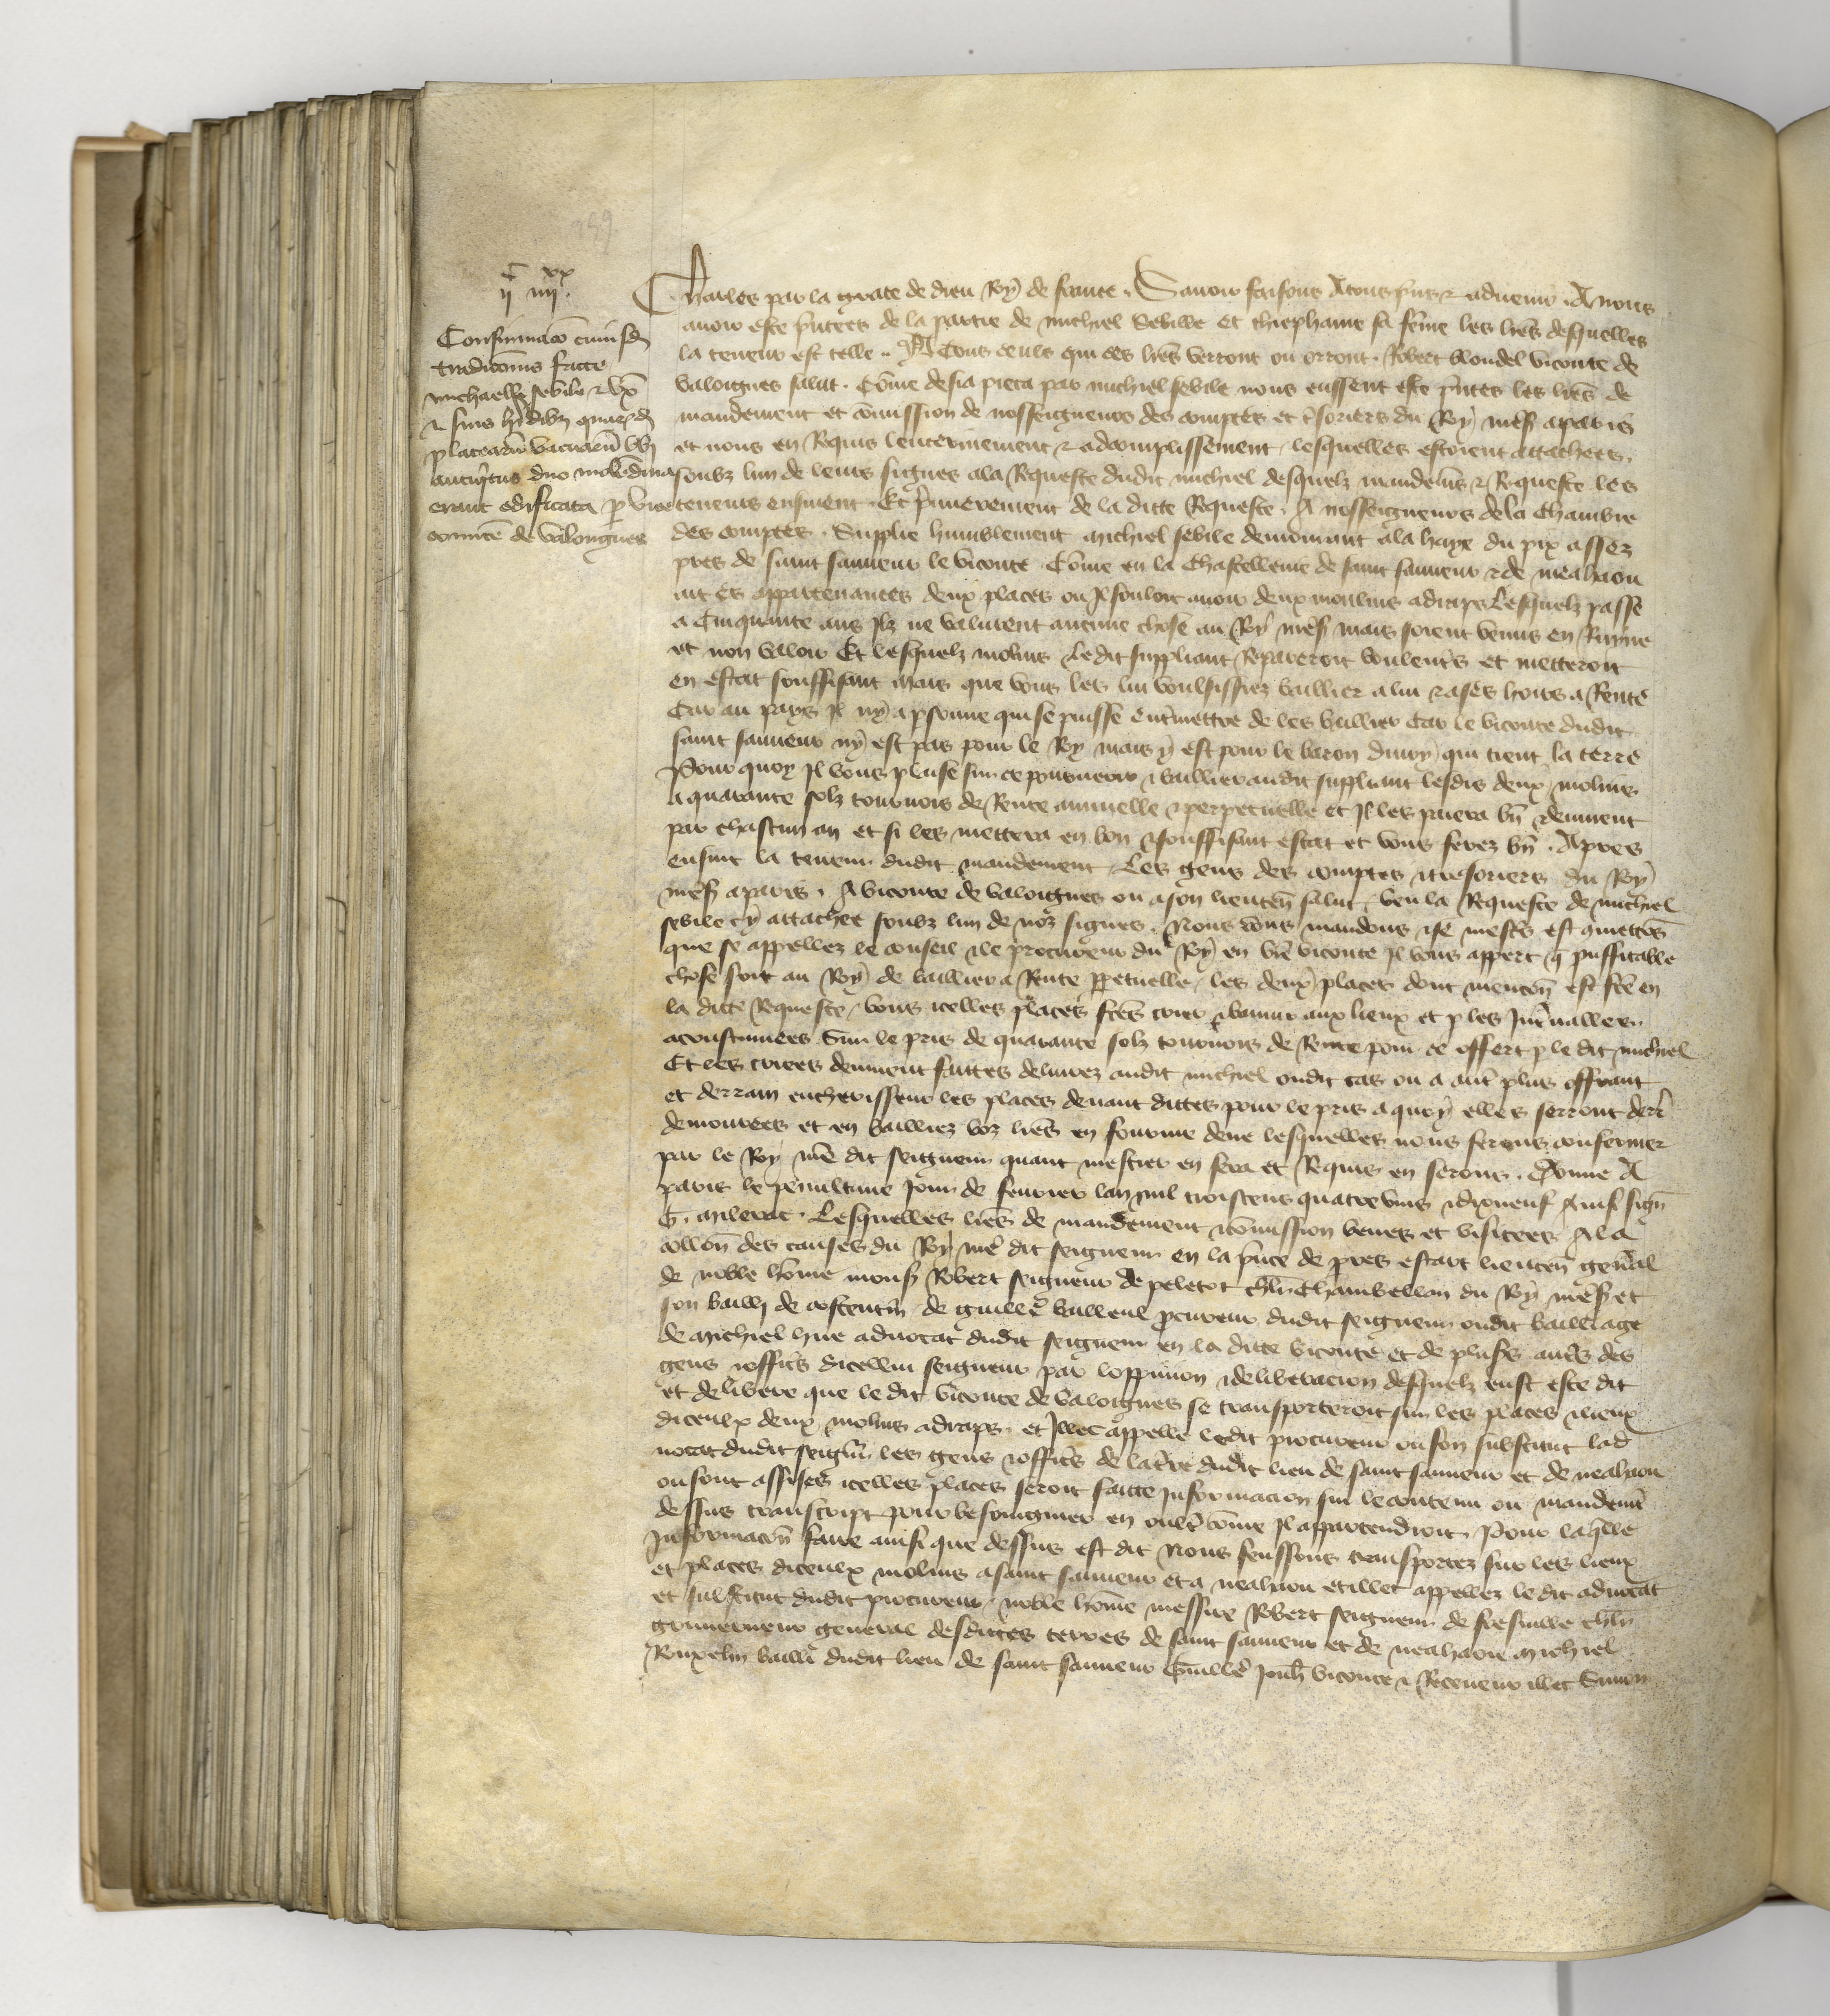 259
c xx
ij iiij.
Confirmacio cuiusd
tradicionis facte
michaelli sebile & ux
& suis hered quarūd
platearū vacuarū ubi
antiqtus duo molēdina
erant edificata p vice
comitē de Valongnes
Charles par la grace de dieu Roy de france. Savoir faisons A tous pns & advenir. A nous
avoir este pntees de la partie de michiel Sebille et thiephaine sa feme les lres desquelles
la teneur est telle. A Tous ceuls qui ces lres verront ou orront. Robert blondel viconte de
valoignes salut. Come desia pieca par michiel sebile nous eussent este pntes les lres de
mandement et comission de nosseigneurs des comptes et tsoriers du Roy nres a paris
et nous en Requis lenterinement & adcomplissement. lesquelles estoient attachees.
soubz lun de leurs signes a la Requeste dudit michiel desquelz mandemēs & Requeste les
teneurs ensuient. Et prumerement de la ditte Requeste. A nosseigneurs de la Chambre
des comptes. Supplie humblement michiel sebile demourant a la haye du pix assez
pres de saint sauveur le viconte Come en la Chastellenie de saint sauveur & de neahaou
ait es appartenances deux places ou Il souloit avoir deux moulins a draps Lesquelz passe
a Cinquante ans Ilz ne valurent aucune chose au Roy nres mais soient venus en Ruyne
et non valoir Et lesquelz molins Ledit suppliant Repareroit voulentrs et metteroit
en estat souffisant mais que vous les lui voulsissiez baillier a lui & a ses hoirs a Rente
Car au pays Il ny a psonne qui se puisse entmettre de les baillier Car le viconte dudit
saint sauveur ny est pas pour le Roy mais y est pour le baron divry qui tient la terre
Pour quoy Il vous plaise sur ce pourveoir & baillier audit suppliant lesdis deux molins
a quarante solz tournois de Rente annuelle & perpetuelle et Il les paiera bn & deuement
par chascun an et si les mettera en bon & souffisant estat et vous ferez bn. Apres
ensuit la teneur dudit mandement. Les gens des comptes & tresoriers du Roy
nres a paris. A viconte de valoignes ou a son lieuten salut. Veu la Requeste de michiel
sebile cy attachee soubz lun de noz signes. Nous vous mandons & se mestr est cmettōs
que se appellez le conseil & le procureur du Roy en vre viconte Il vous appert q puffitable
chose soit au Roy de baillier a Rente ppetuelle les deux places dont mencon est fce en
la ditte Requeste. vous icelles places fces crier & banir aux lieux et p les Intvalles
acoustumees Sur le pris de quarante solz tournois de Rente pour ce offert p le dit michiel
Et les criees deuement faittes delivrez audit michiel oudit cas ou a autr plus offrant
et derrain encherisseur les places devant dittes pour le pris a quoy elles serront derr
demourees et en bailliez voz lres en fourme deue lesquelles nous ferons confermer
par le Roy nre dit seigneur quant mestier en sera et Requis en serons. Donne A
paris le penultime Jour de fevrier lan mil troiscens quatre vins & dixneuf Ainsi sign
G. milerac. Lesquelles lres de mandement & comission veues et visitees A la
collon des causes du Roy nre dit seigneur en la pnce de pres estart lieuten general
de noble home mons Robert seigneur de peletot chlr Chambellan du Roy nres et
son bailli de costentin de guille bailleul pcureur dudit seigneur oudit bailliage
de michiel hue advocat dudit seigneur en la ditte viconte et de pluss autrs des
gens & officrs dicellui seigneur par loppinion & deliberacion desquelz eust este dit
et delibere que le dit viconte de valoignes se transporteroit sur les places & lieux
diceulx deux molins a draps. et Illec appelle ledit procureur ou son substitut lad
vocat dudit seigr les gens & officrs de la tre dudit lieu de saint sauveur et de neahaou
ou sont assises icelles places seroit faitte Informacion sur le contenu ou mandemt
dessus transcript pour besoingnier en oultr come Il appartendroit. Pour laqlle
Informacon faire ainsi que dessus est dit Nous feussons transportez sur les lieux
et places diceulx molins a saint sauveur et a neahaou et illec appellez le dit advocat
et substitut dudit procureur. noble home messire Robert seigneur de fresville chlr
gouverneur general desdittes terres de saint sauveur et de neahaou michiel
Rouxelin bailli dudit lieu de saint sauveur Guille Jouh viconte & Receveur illec Simon